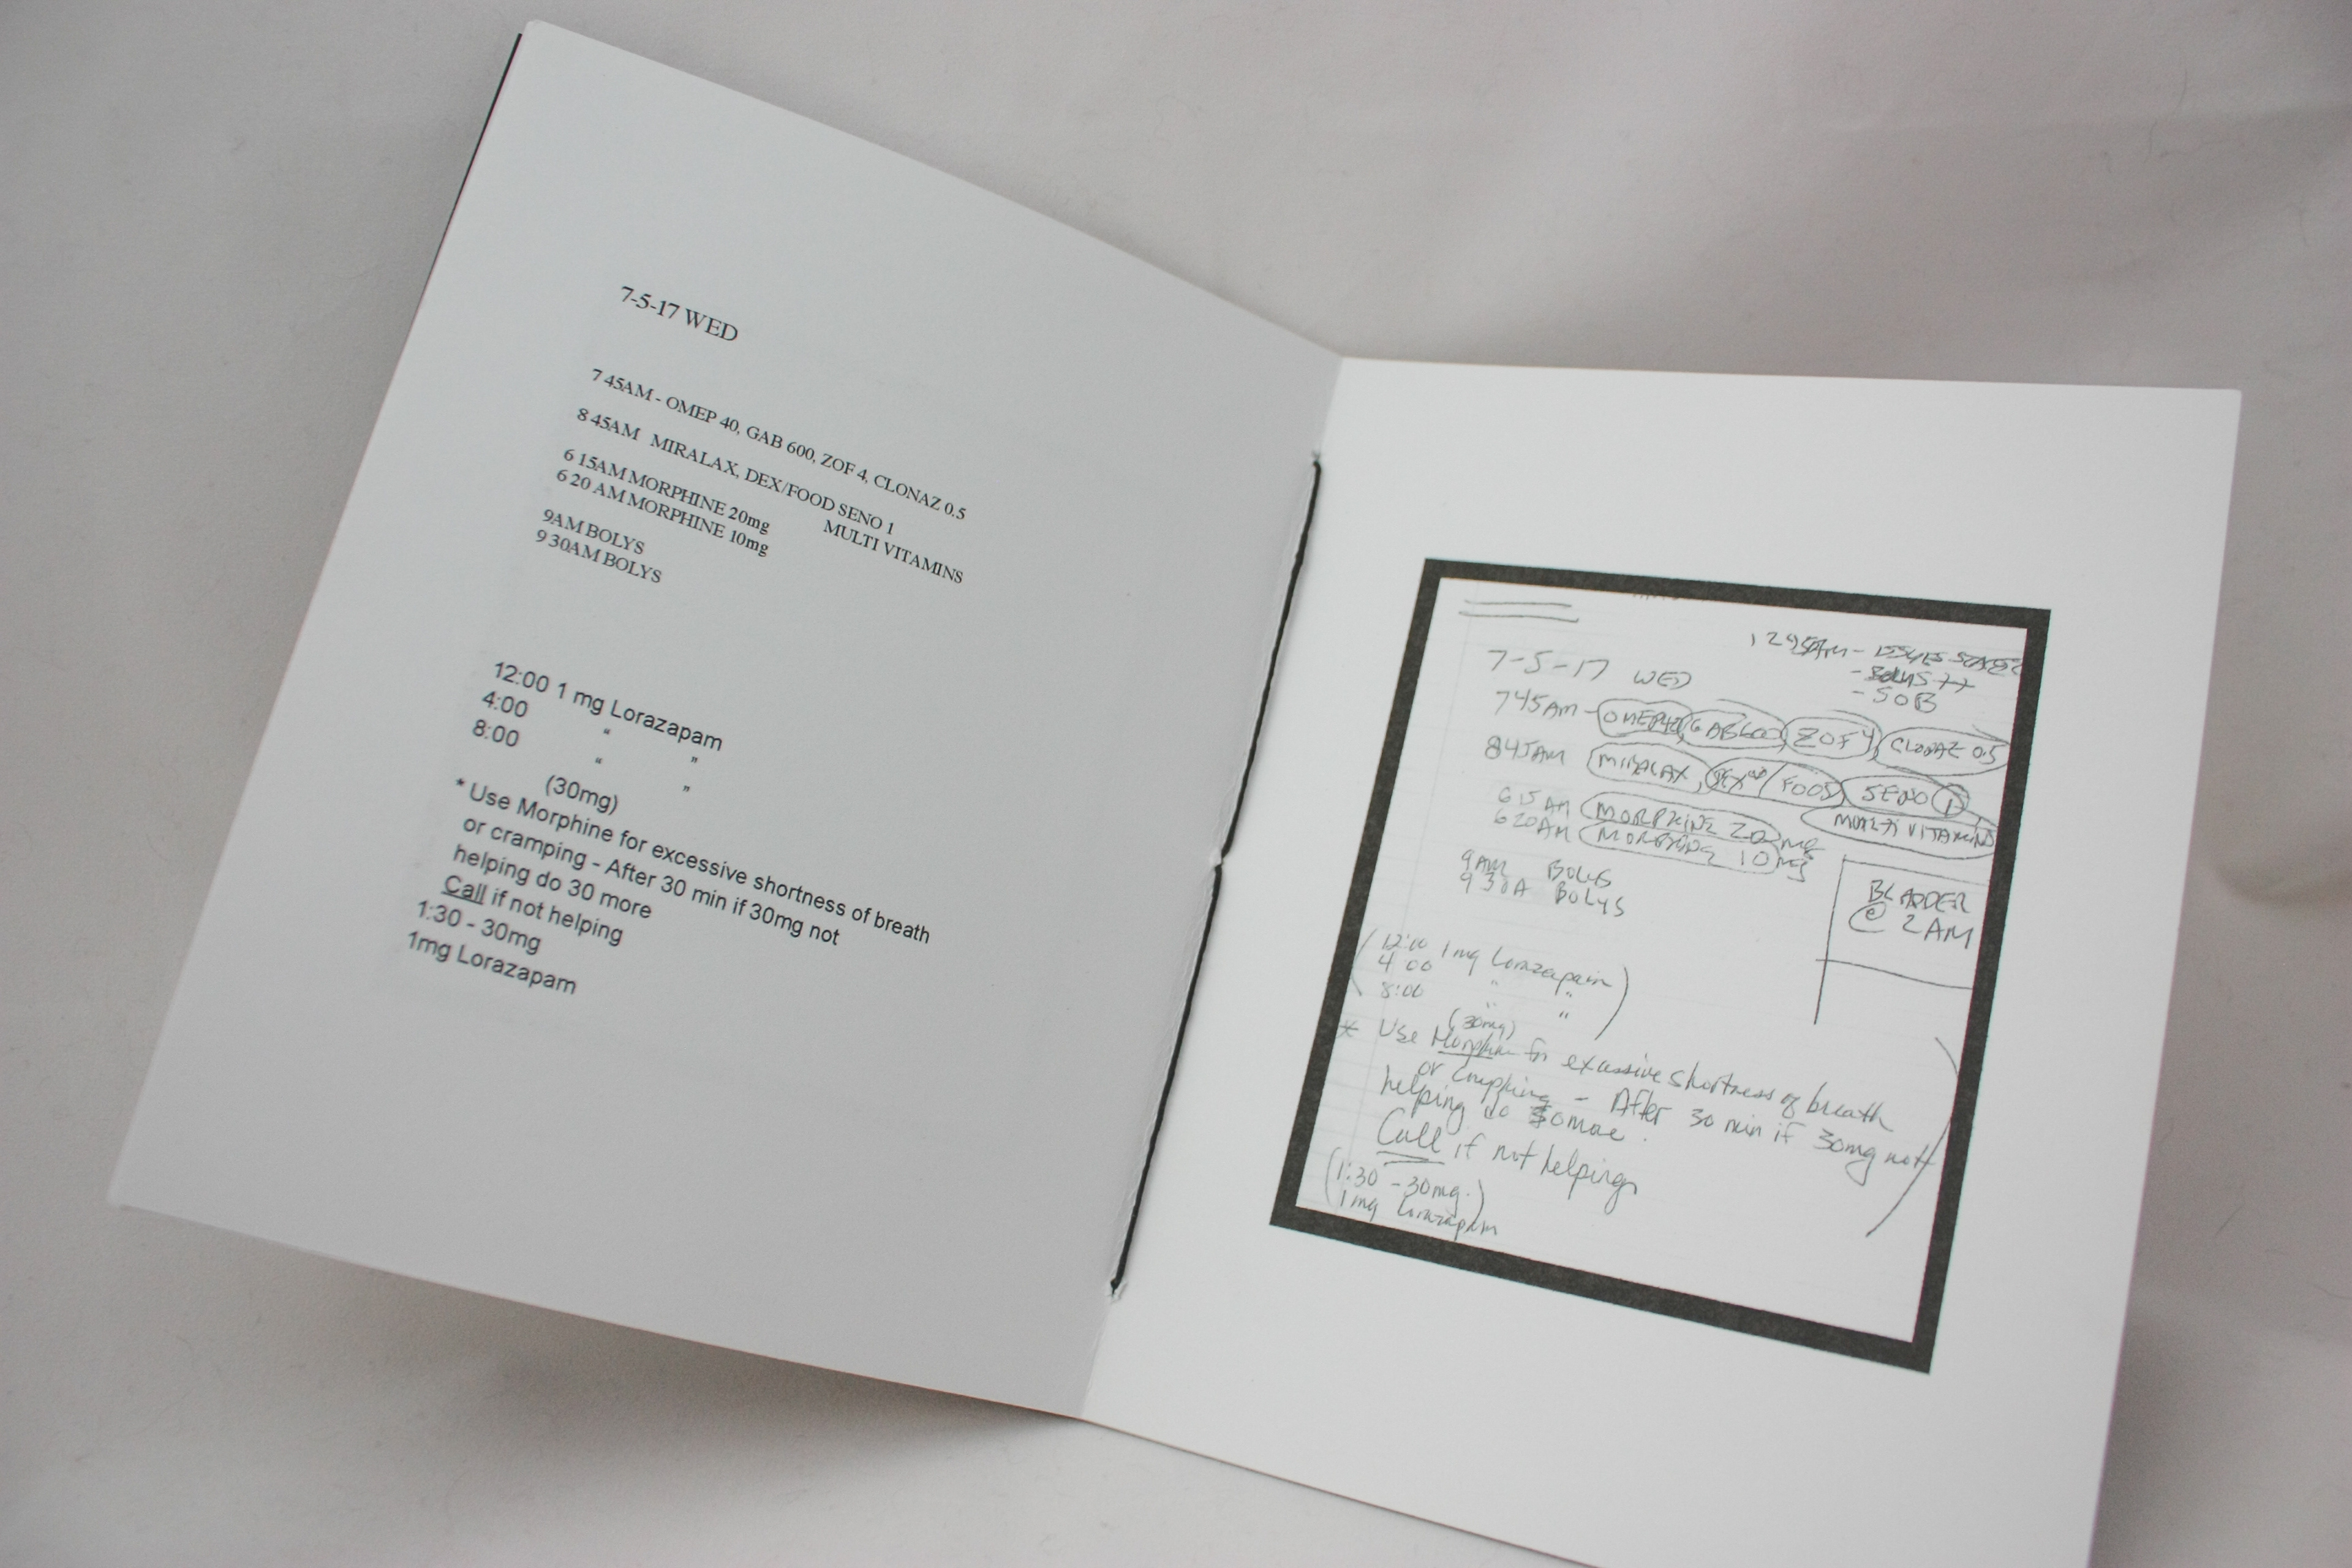 7-5-17 WED
7 45AM - OMEP 40, GAB 600, ZOF 4, CLONAZ 0.5
8 45AM MIRALAX, DEX/FOOD SENO 1
MULTI VITAMINS
6 15AM MORPHINE 20mg
6 20 AM MORPHINE 10mg
9AM BOLYS
9 30AM BOLYS
12:00 1 mg Lorazapam
4:00 “ ”
8:00 “ ”
(30mg)
* Use Morphine for excessive shortness of breath
or cramping - After 30 min if 30mg not
helping do 30 more
Call if not helping
1:30 - 30mg
1mg Lorazapam
1245AM - ISSUES
- BOLYS ++
- SOB
7-5-17 WED
745AM - OMEP40, GAB600, ZOF 4, CLONAZ 0.5
845AM MIRALAX, DEX / FOOD SENO 1
MULTI VITAMINS
615AM MORPHINE 20mg
620AM MORPHINE 10mg
9AM BOLYS
930A BOLYS
BLADDER
@ 2AM
12:00 1mg Lorazapam
4:00 " "
8:00 " "
(30mg)
* Use Morphine for excessive shortness of breath
or - After 30 min if 30mg not
helping do 30 more.
Call if not helping
(1:30 - 30mg.)
1mg Lorazapam